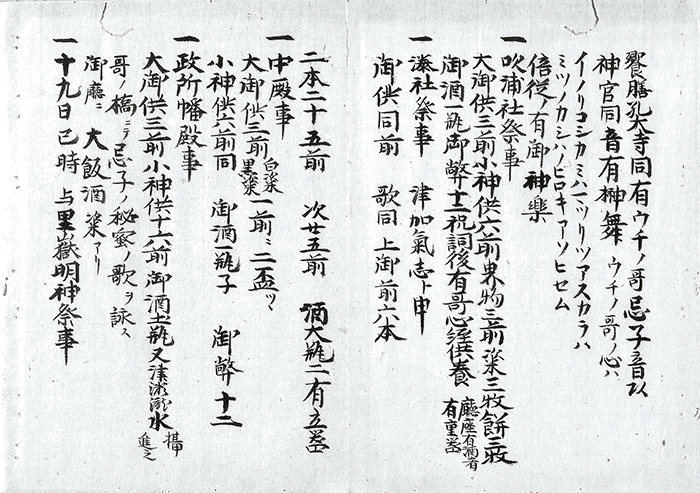 饗膳孔大寺同有ウチノ哥忌子音以
神官同音有榊舞 ウチノ哥ノ心ハ
イノリコシカミハマツリツアスカラハ
ミツノカシハノヒロキアソヒセム
倍従ノ有御神樂
一 吹浦社祭事
大御供三前小神供六前果物三前染三牧餅三牧
御酒一瓶御幣十二祝詞後有哥心経供養 廳座有酒肴 有童舞
一 湊社祭事 津加氣志ト申
御供同前 歌同上御前六本
二本二十五前 次廿五前 酒大瓶二有立
一 中殿事
大御供三前 白染 黒染 一前ニ二盃ツヽ
小神供六前同 御酒一瓶子 御幣十二
一 政所幡殿事
大御供三前小神供十六前御酒土瓶又 水 進之
哥ノ橋ニテ忌子ノ秘蜜ノ歌ヲ詠ス
御廳ニ 大飯酒染アリ
一 十九日巳時 与里嶽明神祭事